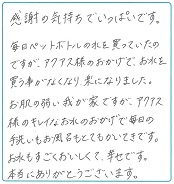 感謝の気持ちでいっぱいです。
毎日ペットボトルの水を買っていたの
ですが、アクアス様のおかげで、お水を
買う事がなくなり、楽になりました。
お肌の弱い我が家ですが、アクアス
様のキレイなお水のおかげで毎日の
手洗いもお風呂もとてもかいてきです。
お水もすごくおいしくて、幸せです。
本当にありがとうございます。